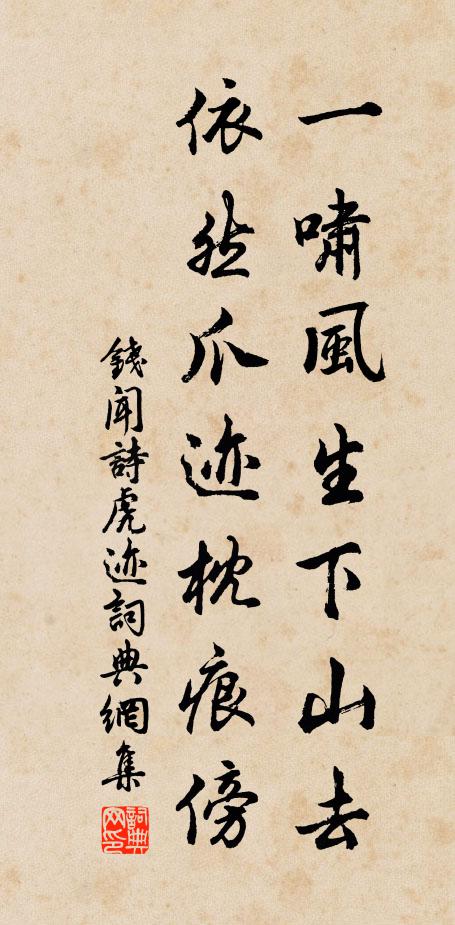 一嘯風生下山去
依然爪迹枕痕傍
錢聞詩虎迹詞典網集
詞典網印